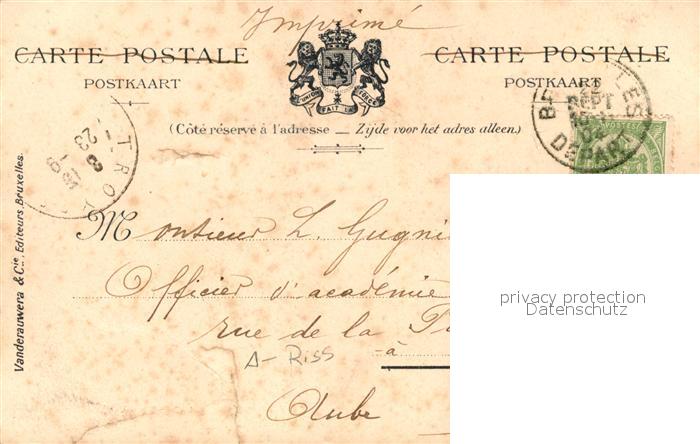 Imprimé
CARTE POSTALE
POSTKAART
UNION FAIT LA FORCE
CARTE POSTALE
POSTKAART
(Côté réservé à l'adresse — Zijde voor het adres alleen.)
SEPT
DEPART
TRO
23
8
POSTES
Vanderauwera & Cie, Editeurs, Bruxelles.
Monsieur L. Gugni
Officier d'académie
rue de la
à
A-Riss
Aube
privacy protection
Datenschutz